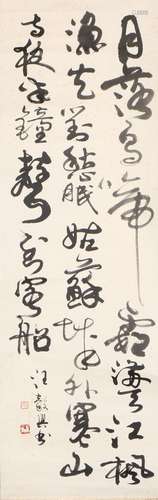 月落烏啼霜滿天江楓
漁火對愁眠姑蘇城外寒山
寺夜半鐘聲到客船
汪
書